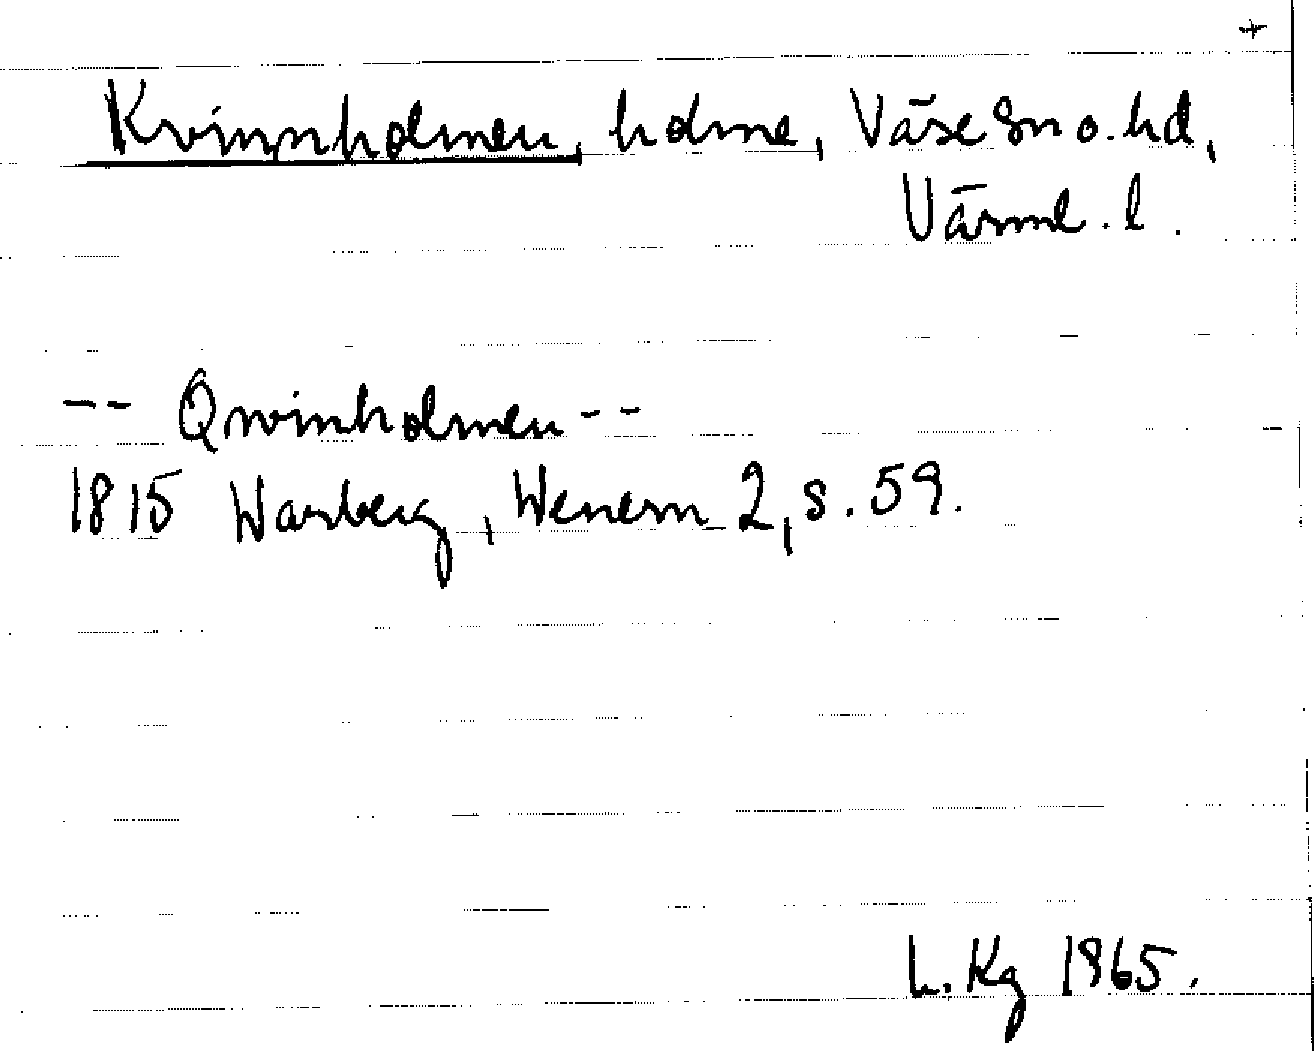 +
Kvinnholmen, holme, Väse sn o. hd,
Värml. l.
-- Qwinholmen --
1815 Warberg, Wenern 2, s. 59.
L. Kg 1965.